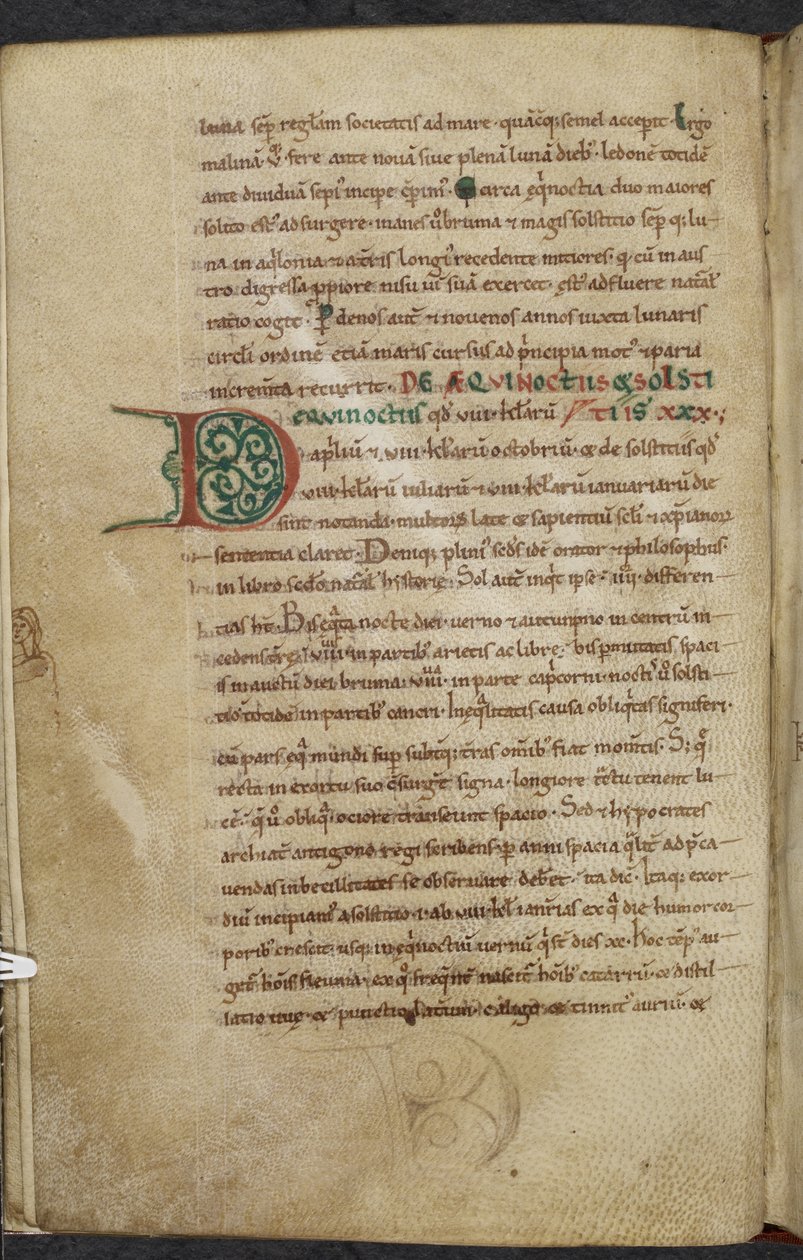 luna sēp regłam societatis ad mare · quācq; semel accepit · Ergo
malinā · v · fere ante nouā siue plenā lunā dieb' · ledonē totidē
ante diuiduā sepi' incipe cperim' · circa ęqnoctia duo maiores
solito est' adsurgere · inanes u bruma & magis solstitio sēp q; lu-
na in aqlonia & a tris longi' recedente mitiores · q cū in aus
tro digressa ppiore nisu uim suā exercet · ęst' adfluere nat'at
ratio cogit · P denos aut & nouenos annos iuxta lunaris
circli ordinē etiā maris cursus ad principia mot' & paria
increm̄ta recurrit · DE ÆQVINOCTIIS & SOLSTI
De equinoctiis qđ viii · kłarū TIIS XXX ·;
apliū & viii · kłarū octobriū · & de solstitiis qđ
viii · kłarū iuliarū & viii · kłarū ianuariarū die
sint notanda · multorꝝ late & sapientiū scłi & xpianorꝝ
sententia claret · Deniq; plini' scđs idē orator & philosophus ·
in libro scđo nat'at hystorię · Sol aut inqt ipse · iiii · differen-
tias ht · Bis ęqta nocte diei · uerno & autumno in centrū in-
cedens tre · viii · in partib' arietis ac libre · bis pmutatis spaci-
is in auctū diei bruma · viii · in parte capcorni · nocti' u solsti-
tio totidē in partib' cancri · Inęqlitatis causa obliqtas signiferi ·
cū pars ęqa mundi sup subtq; tras omib' fiat mom̄tis · S; q
recta in exortu suo csurgt signa · longiore tctu tenent lu-
cē · q u obliq · ociore transeunt spacio · Sed & hypocrates
archiat antigono regi scribens · p anni spacia qlit ad pca-
uendas inbecillitates se obseruare debet · ita dic · Itaq; exor-
diū incipiam' a solstitio · i · ab viii · kł ianrias ex q die humor cor-
porib' crescit · usq; in ęqnoctiū uernū qst dies xc · Hoc tēp' au-
get' hōis fleuma · ex q freqnt nascit' hōib' catarrū · & distil-
latio uuę · & punctio latum · caligo & tinnit' auriū · &